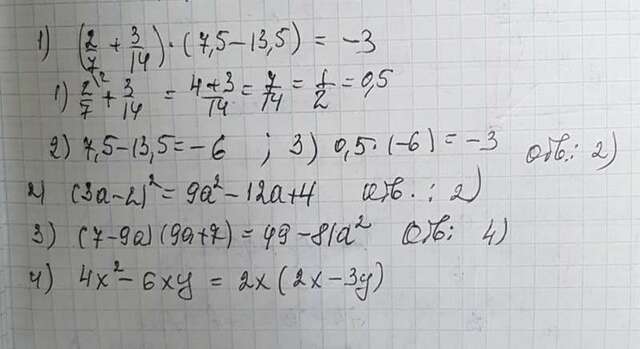 1) (2/7 + 3/14) · (7,5 – 13,5) = –3
1) 2/7 ² + 3/14 = 4+3/14 = 7/14 = 1/2 = 0,5
2) 7,5 – 13,5 = – 6 ; 3) 0,5 · (–6) = –3 Отв.: 2)
2) (3a – 2)² = 9a² – 12a + 4 Отв. : 2)
3) (7 – 9a) (9a + 7) = 49 – 81a² Отв: 4)
4) 4x² – 6xy = 2x (2x – 3y)